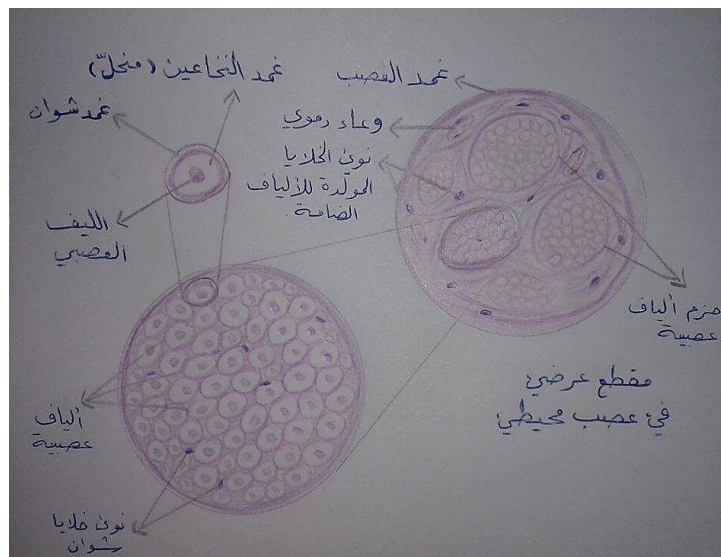 غمد النخاعين (منحلّ)
غمد العصب
غمد شوان
وعاء دموي
نوى الخلايا
المولّدة للألياف
الضامة.
الليف
العصبي
حزم ألياف
عصبية
مقطع عرضي
في عصب محيطي
ألياف
عصبية
نوى خلايا
شوان